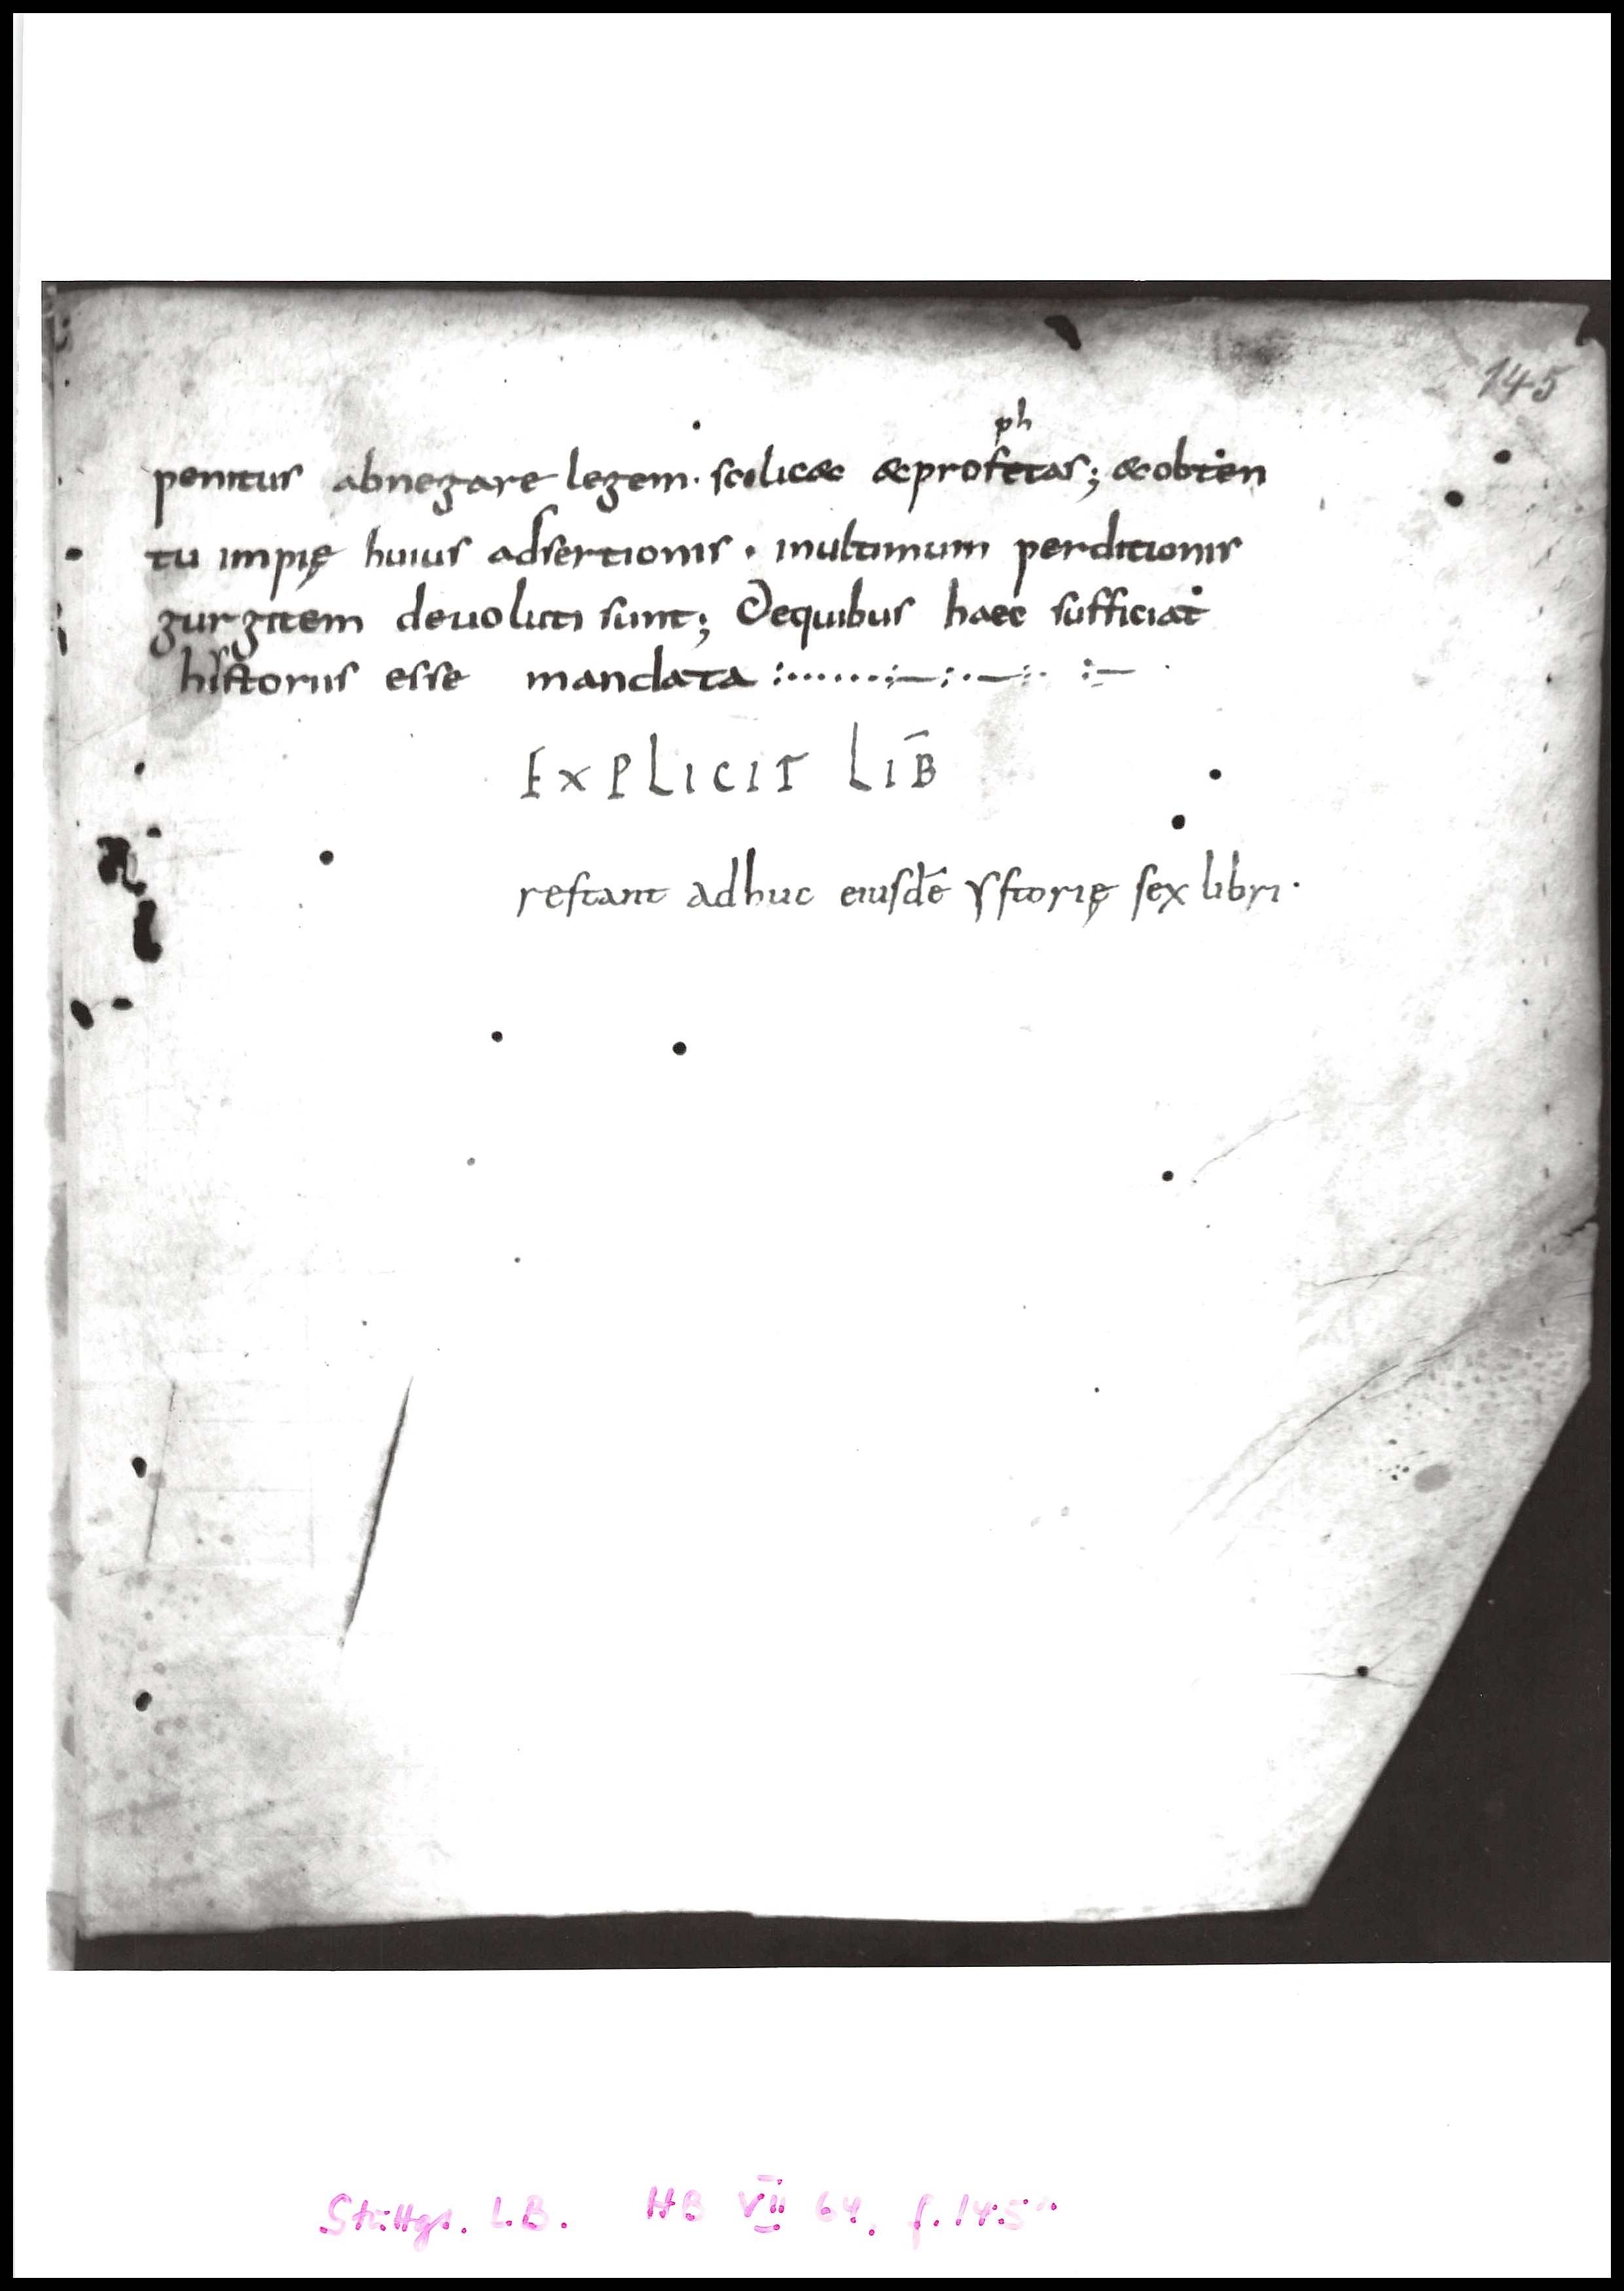 145
ph
penitus abnegare legem · scilicet et profetas ; et obten
tu impię huius adsertionis · in ultimum perditionis
gurgitem devoluti sunt ; De quibus haec sufficiat
historiis esse mandata :······:—:·—:· :—
EXPLICIT LIB̄
restant adhuc eiusdē ystorię sex libri ·
Stuttgt. L.B. HB VII 64, f. 145r